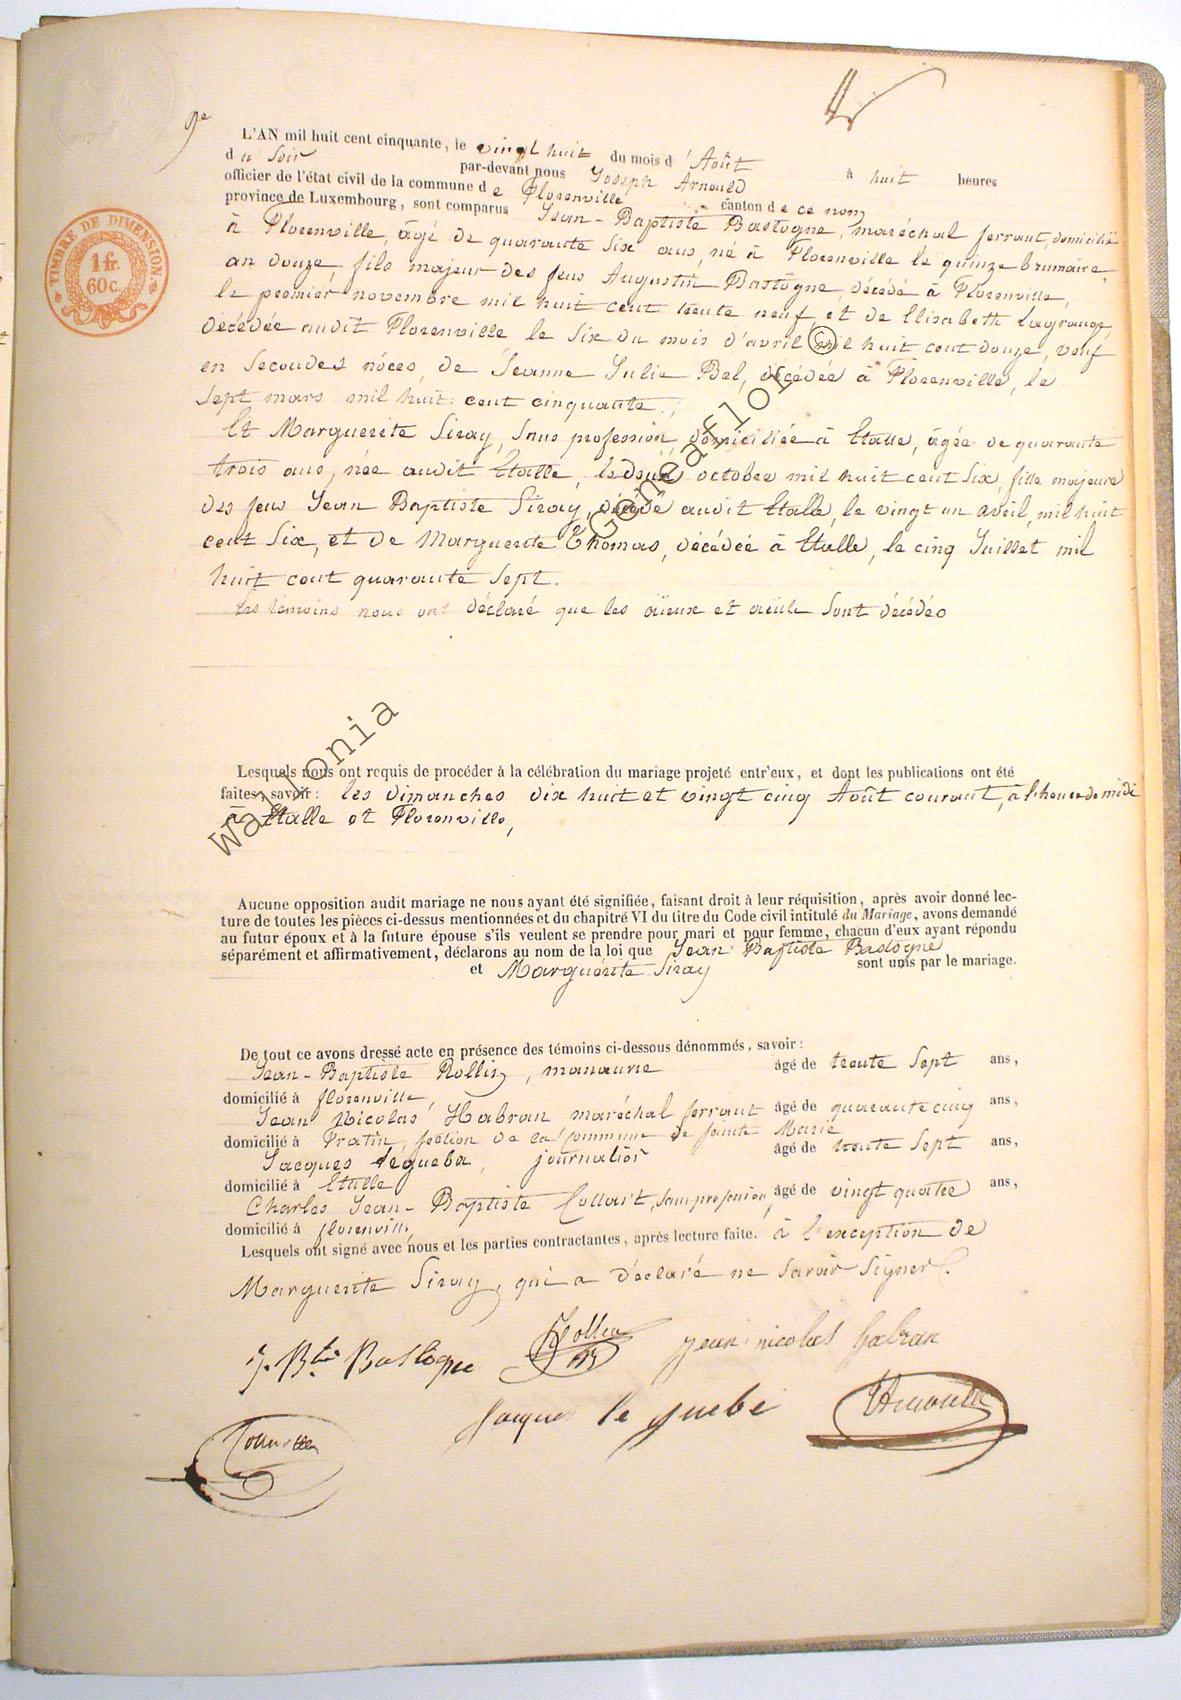 9e
L'AN mil huit cent cinquante, le vingt huit du mois d'Août à huit heures
du soir par-devant nous Joseph Arnould
officier de l'état civil de la commune de Florenville canton de ce nom
province de Luxembourg, sont comparus Jean-Baptiste Bastogne, maréchal ferrant, domicilié
à Florenville, âgé de quarante six ans, né à Florenville le quinze brumaire,
an douze, fils majeur des feus Augustin Bastogne, décédé à Florenville,
le premier novembre mil huit cent trente neuf et de Elisabeth Lagrange,
décédée audit Florenville le six du mois d'avril mil huit cent douze, veuf
en secondes nôces, de Jeanne Julie Bel, décédée à Florenville, le
sept mars mil huit cent cinquante;
Et Marguerite Siray, sans profession, domiciliée à Etalle, âgée de quarante
trois ans, née audit Etalle, le deux octobre mil huit cent six, fille majeure
des feus Jean Baptiste Siray, décédé audit Etalle, le vingt un avril, mil huit
cent six, et de Marguerite Thomas, décédée à Etalle, le cinq Juillet mil
huit cent quarante sept.
Les témoins nous ont déclaré que les aïeux et aïeule sont décédés
Lesquels nous ont requis de procéder à la célébration du mariage projeté entr'eux, et dont les publications ont été
faites, savoir: les dimanches dix huit et vingt cinq Août courant, à l'heure de midi
à Etalle et Florenville,
Aucune opposition audit mariage ne nous ayant été signifiée, faisant droit à leur réquisition, après avoir donné lec-
ture de toutes les pièces ci-dessus mentionnées et du chapitre VI du titre du Code civil intitulé du Mariage, avons demandé
au futur époux et à la future épouse s'ils veulent se prendre pour mari et pour femme, chacun d'eux ayant répondu
séparément et affirmativement, déclarons au nom de la loi que Jean Baptiste Bastogne
et Marguerite Siray sont unis par le mariage.
De tout ce avons dressé acte en présence des témoins ci-dessous dénommés, savoir:
Jean-Baptiste Rollin, manœuvre âgé de trente sept ans,
domicilié à florenville,
Jean Nicolas Habran maréchal ferrant âgé de quarante cinq ans,
domicilié à Fratin, section de la commune de sainte Marie
Jacques Légueba, journalier âgé de trente sept ans,
domicilié à Etalle
Charles Jean-Baptiste Collart, sans profession, âgé de vingt quatre ans,
domicilié à florenville
Lesquels ont signé avec nous et les parties contractantes, après lecture faite. à l'exception de
Marguerite Siray, qui a déclaré ne savoir signer.
J. Bte Bastogne Rollin jean nicolas habran
Jaques le guebe Arnould
TIMBRE DE DIMENSION.
1 fr.
60 c.
Wallonia
Généaflor ©